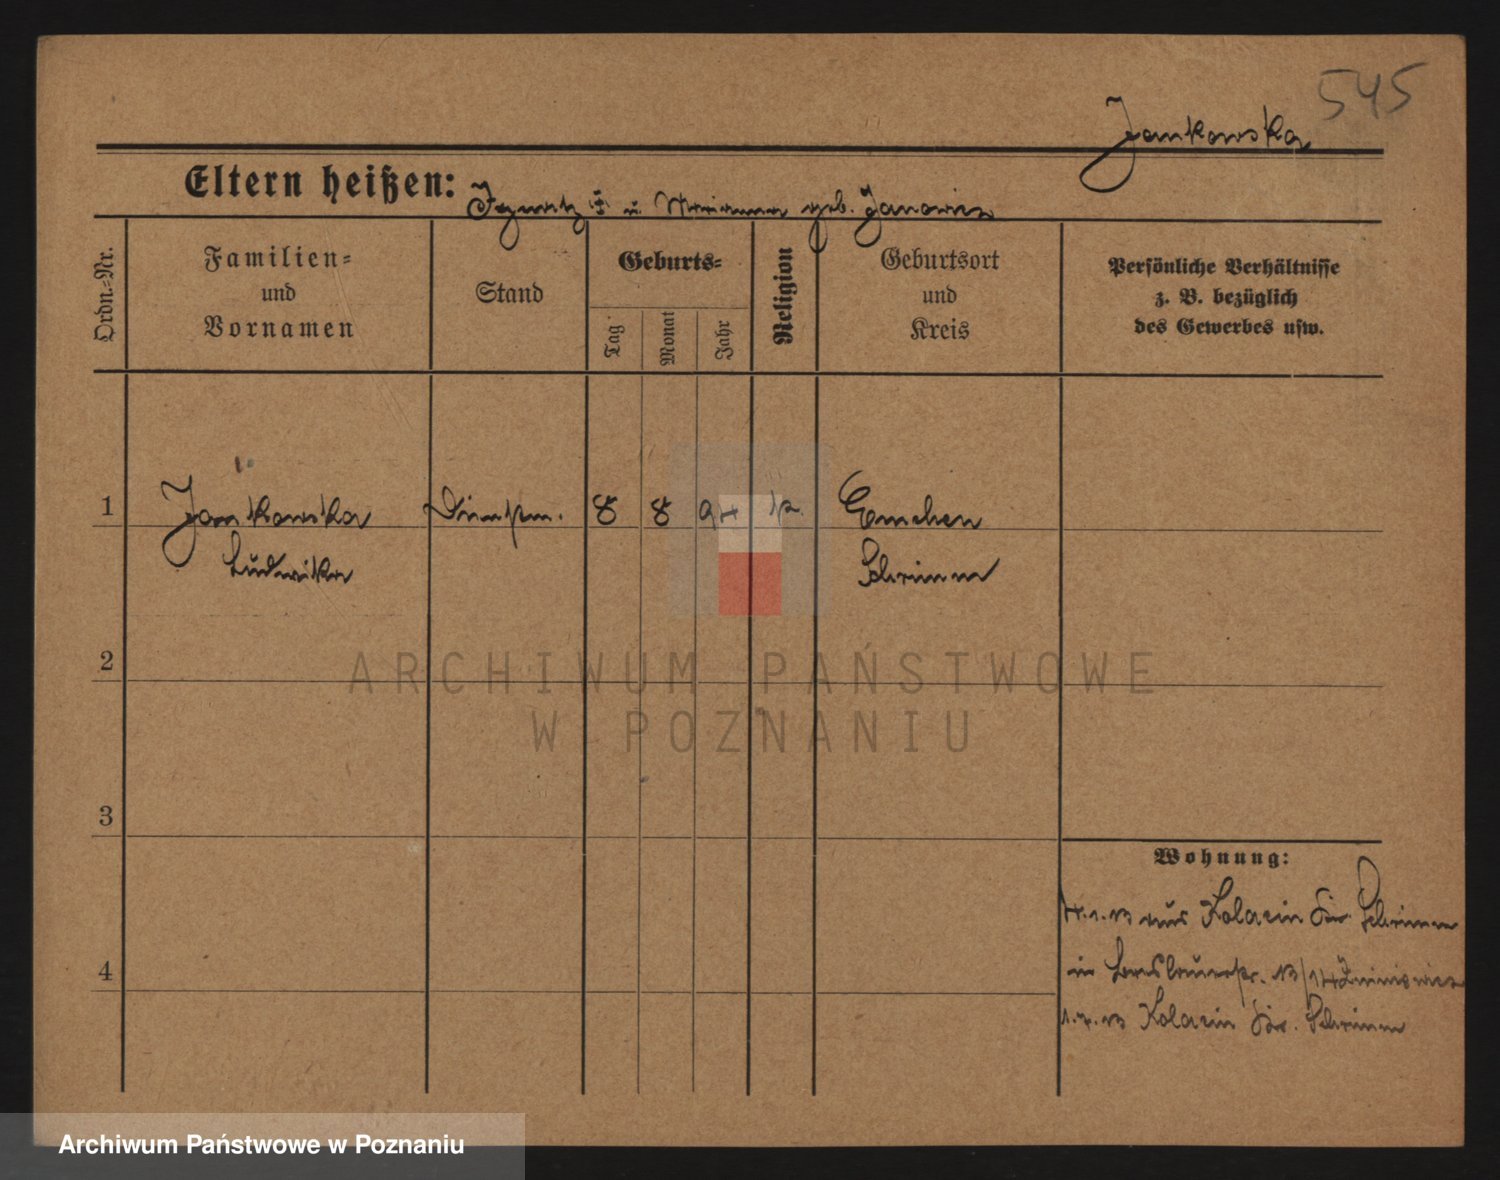 545
Jankowska
Eltern heißen: Ignatz † u. Marianna geb. Janowicz
Ordn.=Nr.
Familien=
und
Vornamen
Stand
Geburts=
Tag
Monat
Jahr
Religion
Geburtsort
und
Kreis
Persönliche Verhältnisse
z. B. bezüglich
des Gewerbes usw.
1 Jankowska 8 8 94 k. Emchen
Ludwika Schrimm
2
3
4
Wohnung:
4.1.13 aus Kolacin Kr. Schrimm
in Breslauerstr. 13/14
1.7.13 Kolacin Kr. Schrimm
ARCHIWUM PAŃSTWOWE
W POZNANIU
Archiwum Państwowe w Poznaniu